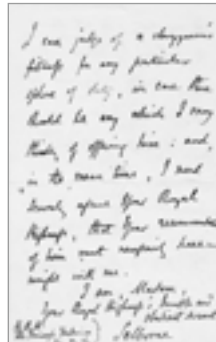 I can judge of a clergyman's
fitness for any particular
sphere of duty, in case there
should be any which I may
think of offering him: and,
in the mean time, I need
scarcely assure Your Royal
Highness, that Your recommendation
of him must necessarily have
weight with me.
I am, Madam,
Your Royal Highness's humble and
obedient servant
Selborne